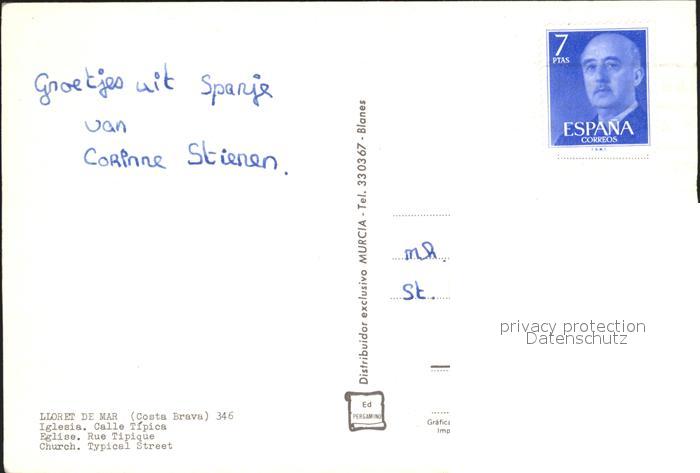 Groetjes uit Spanje
van
Corinne Stienen.
7
PTAS
ESPAÑA
CORREOS
Distribuidor exclusivo MURCIA - Tel. 330367 - Blanes
mh.
St.
privacy protection
Datenschutz
Ed
PERGAMINO
Gráfica
Imp
LLORET DE MAR (Costa Brava) 346
Iglesia. Calle Típica
Eglise. Rue Tipique
Church. Typical Street